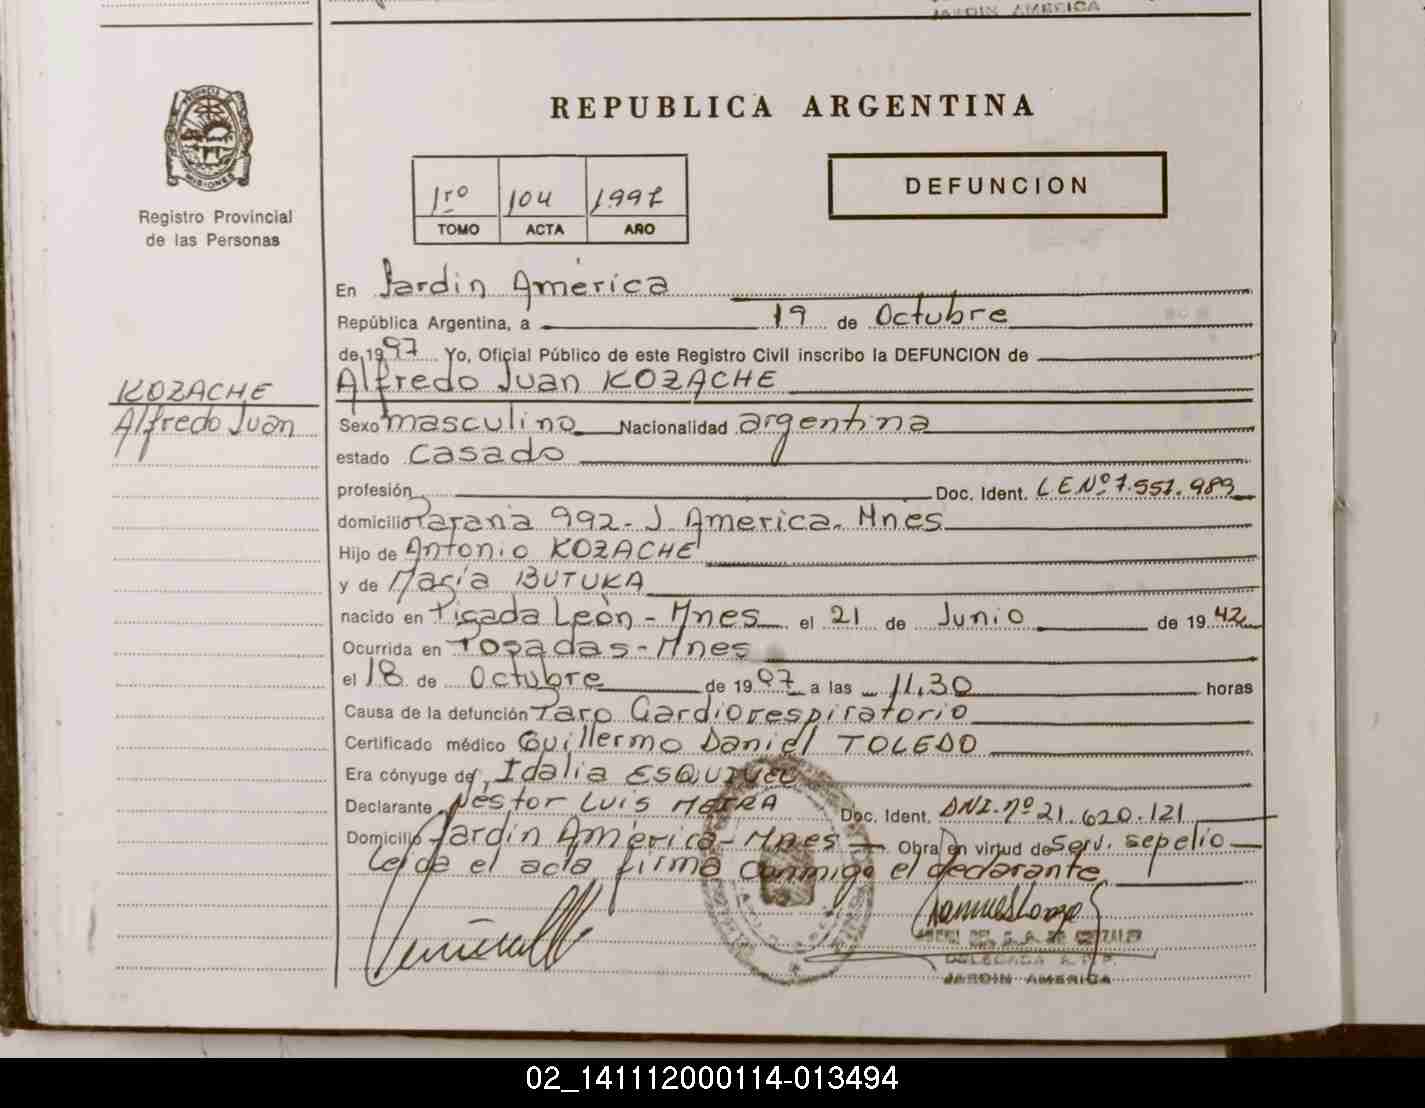 JARDIN AMERICA
REPUBLICA ARGENTINA
PROVINCIA DE
MISIONES
Registro Provincial
de las Personas
1ro 104 1997
TOMO ACTA AÑO
DEFUNCION
En Jardin América
República Argentina, a 19 de Octubre
de 1997 Yo, Oficial Público de este Registro Civil inscribo la DEFUNCION de
Alfredo Juan KOZACHE
KOZACHE
Alfredo Juan
Sexo masculino Nacionalidad argentina
estado Casado
profesión Doc. Ident. L.E.Nº 7.551.989
domicilio Paraná 992- J. America. Mnes
Hijo de Antonio KOZACHE
y de María BUTUKA
nacido en Picada León - Mnes el 21 de Junio de 1942
Ocurrida en Posadas - Mnes
el 18 de Octubre de 1997 a las 11,30 horas
Causa de la defunción Paro Cardiorespiratorio
Certificado médico Guillermo Daniel TOLEDO
Era cónyuge de Idalia ESQUIVEL
Declarante Néstor Luis MEIRA Doc. Ident. DNI. nº 21.620.121
Domicilio Jardín América - Mnes Obra en virtud de Serv. sepelio
Leída el acta firma conmigo el declarante
DELEGADA R.P.P.
JARDIN AMERICA
02_141112000114-013494